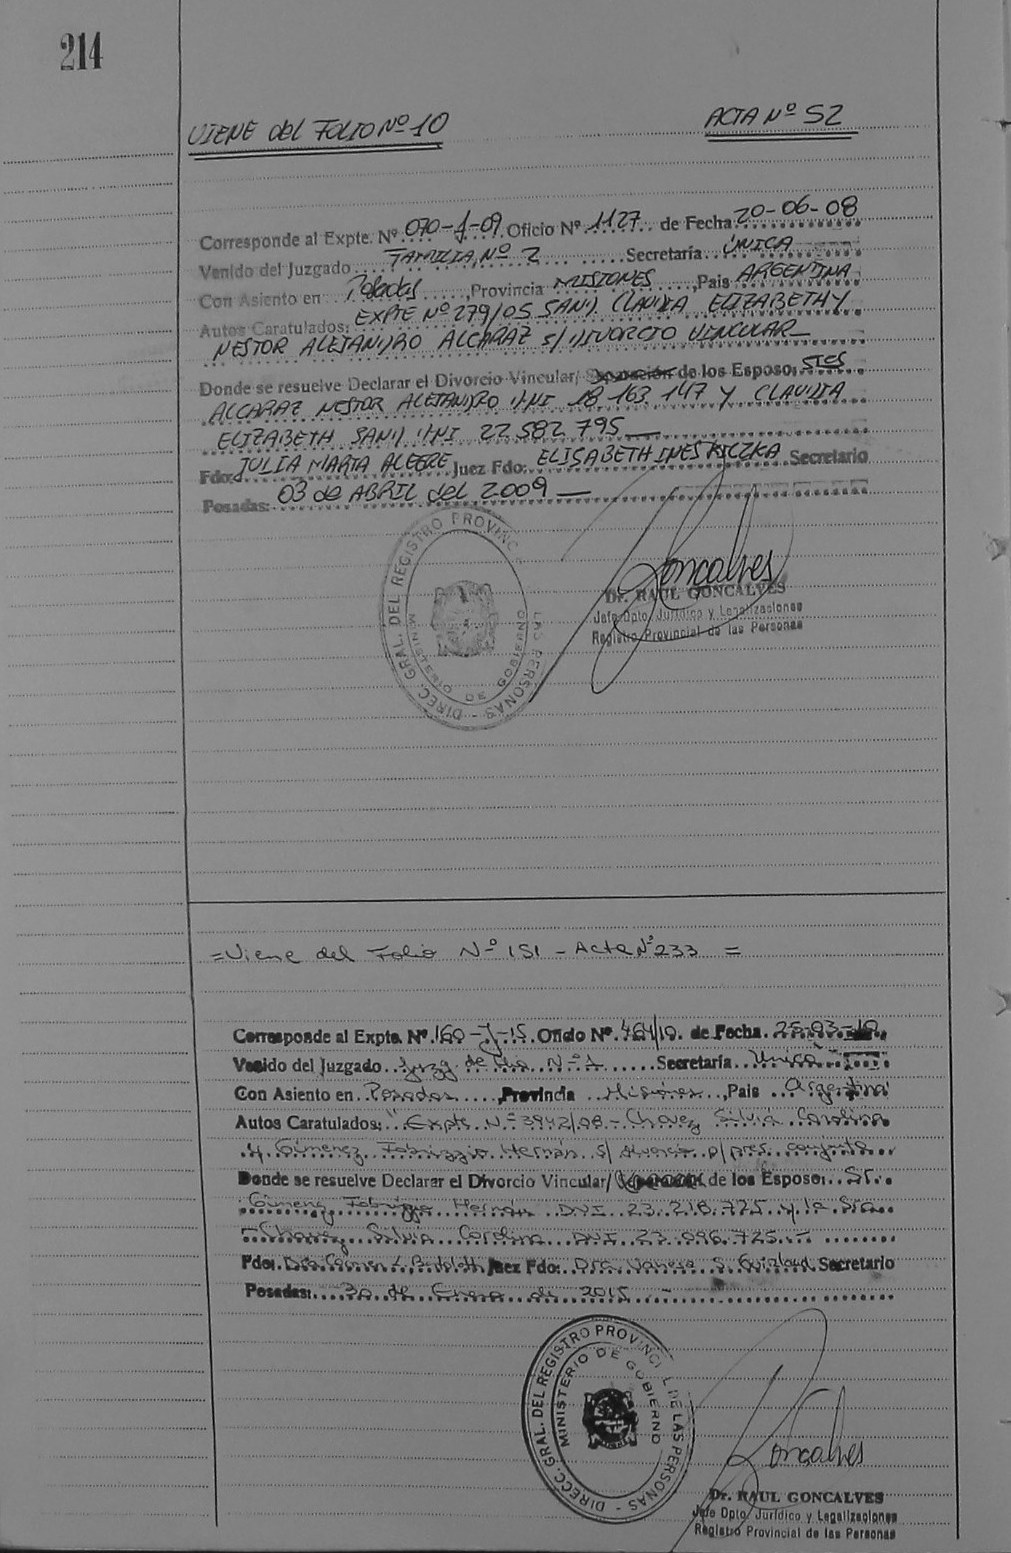 214
VIENE del FOLIO Nº 10
ACTA Nº 52
Corresponde al Expte. Nº 070-J-09 Oficio Nº 1127 de Fecha 20-06-08
Venido del Juzgado FAMILIA Nº 2 Secretaría ÚNICA
Con Asiento en Posadas, Provincia MISIONES, Pais ARGENTINA
Autos Caratulados: EXPTE Nº 279/05 SAND CLAUDIA ELIZABETH Y
NESTOR ALEJANDRO ALCARAZ s/ DIVORCIO VINCULAR
Donde se resuelve Declarar el Divorcio Vincular/ Separación de los Esposo: STES
ALCARAZ NESTOR ALEJANDRO DNI 18 163 147 Y CLAUDIA
ELIZABETH SAND DNI 22 582 795
Fdo: JULIA MARTA ALEGRE Juez Fdo: ELISABETH INES Secretario
Posadas: 03 de ABRIL del 2009
DIREC. GRAL. DEL REGISTRO PROVINC LAS PERSONAS
MINISTERIO DE GOBIERNO
Goncalves
Dr. RAUL GONCALVES
Jefe Dpto. Jurídico y Legalizaciones
Registro Provincial de las Personas
= Viene del Folio Nº 151 - Acta Nº 233 =
Corresponde al Expte. Nº 160-J-15 Oficio Nº 464/10 de Fecha 25-03-10
Venido del Juzgado Juzg. de Flia Nº 1 Secretaría Unica
Con Asiento en Posadas, Provincia Misiones, Pais Argentina
Autos Caratulados: "Expte Nº 3942/08 - Chavez Silvia Carolina
y Gimenez Fabrizzio Hernán s/ divorcio p/ pres. conjunta
Donde se resuelve Declarar el Divorcio Vincular/ de los Esposo: Sr.
Gimenez Fabrizzio Hernán DNI 23.218.775 y la Sra.
Chavez Silvia Carolina DNI 23.096.725
Fdo: Dra Juez Fdo: Dra. Secretario
Posadas: 30 de Enero de 2015
DIRECC. GRAL. DEL REGISTRO PROVINCI L DE LAS PERSONAS
MINISTERIO DE GOBIERNO
Goncalves
Dr. RAUL GONCALVES
Jefe Dpto. Jurídico y Legalizaciones
Registro Provincial de las Personas